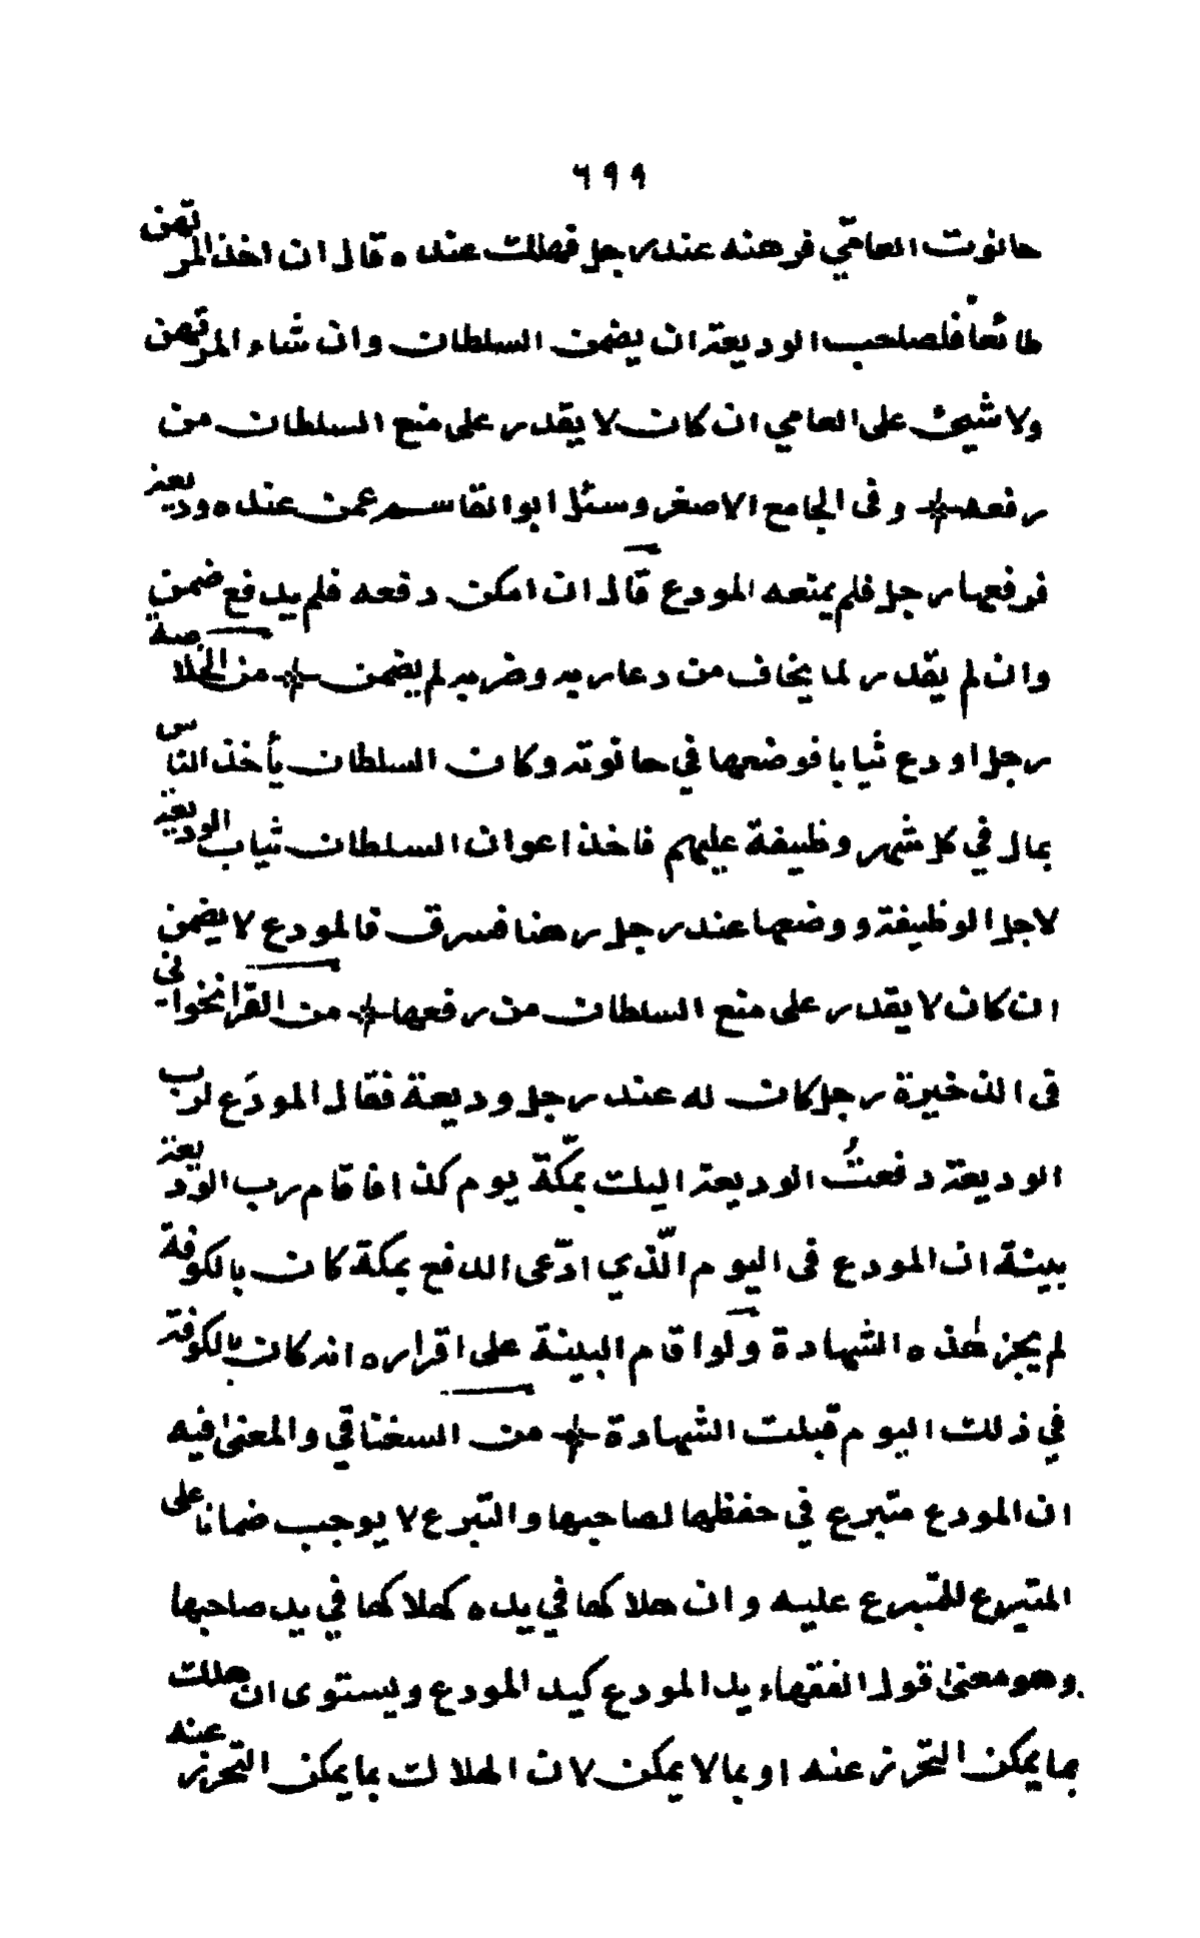 ٦٩٩
حانوت العامّي فرهنه عند رجل فهلك عنده قال ان اخذ المرتهن
طائعاً فلصاحب الوديعة ان يضمن السلطان وان شاء المرتهن
ولا شيئ على العامي ان كان لا يقدر على منع السلطان من
رفعه وفى الجامع الاصغر وسئل ابو القاسم عمن عنده وديعة
فرفعها رجل فلم يمنعه المودع قال ان امكن دفعه فلم يدفع ضمن
وان لم يقدر لما يخاف من دعاريه وضربه لم يضمن من الخلاصة
رجل اودع ثيابا فوضعها في حانوته وكان السلطان يأخذ الناس
بمال في كل شهر وظيفة عليهم فاخذ اعوان السلطان ثياب الوديعة
لاجل الوظيفة ووضعها عند رجل رهنا فسرق فالمودع لا يضمن
ان كان لا يقدر على منع السلطان من رفعها من القرانخوانى
فى الذخيرة رجل كان له عند رجل وديعة فقال المودَع لرب
الوديعة دفعتُ الوديعة اليك بمكّة يوم كذا فاقام رب الوديعة
بينة ان المودع فى اليوم الّذي ادّعى الدفع بمكة كان بالكوفة
لم يجز هٰذه الشهادة ولو اقام البينة على اقراره انه كان بالكوفة
في ذلك اليوم قبلت الشهادة من السغناقي والمعنىٰ فيه
ان المودع متبرع في حفظها لصاحبها والتبرع لا يوجب ضمانا على
المتبرع للمتبرع عليه وان هلاكها في يده كهلاكها في يد صاحبها
وهو معنىٰ قول الفقهاء يد المودع كيد المودع ويستوى ان هلك
بما يمكن التحرز عنه او بما لا يمكن لان الهلاك بما يمكن التحرز عنه